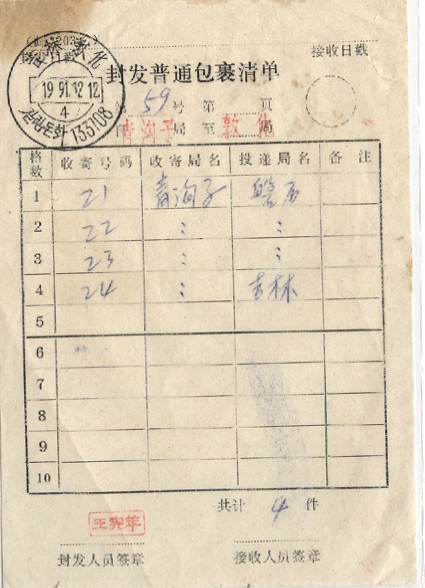 接收日戳
吉林 敦化
19 91.12 12
4
길림돈화 133708
封发普通包裹清单
第 59 号 第 页
自 青沟子 局 至 敦化 局
格数 收寄号码 收寄局名 投递局名 备注
1 21 青沟子 磐石
2 22 〃 〃
3 23 〃 〃
4 24 吉林
5
6
7
8
9
10
共计 4 件
封发人员签章 接收人员签章